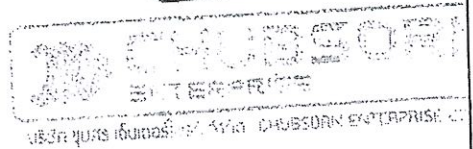 CHUBSORN
ENTERPRISE
บริษัท ชุบสร เอ็นเตอร์ไพรส์ จำกัด CHUBSORN ENTERPRISE